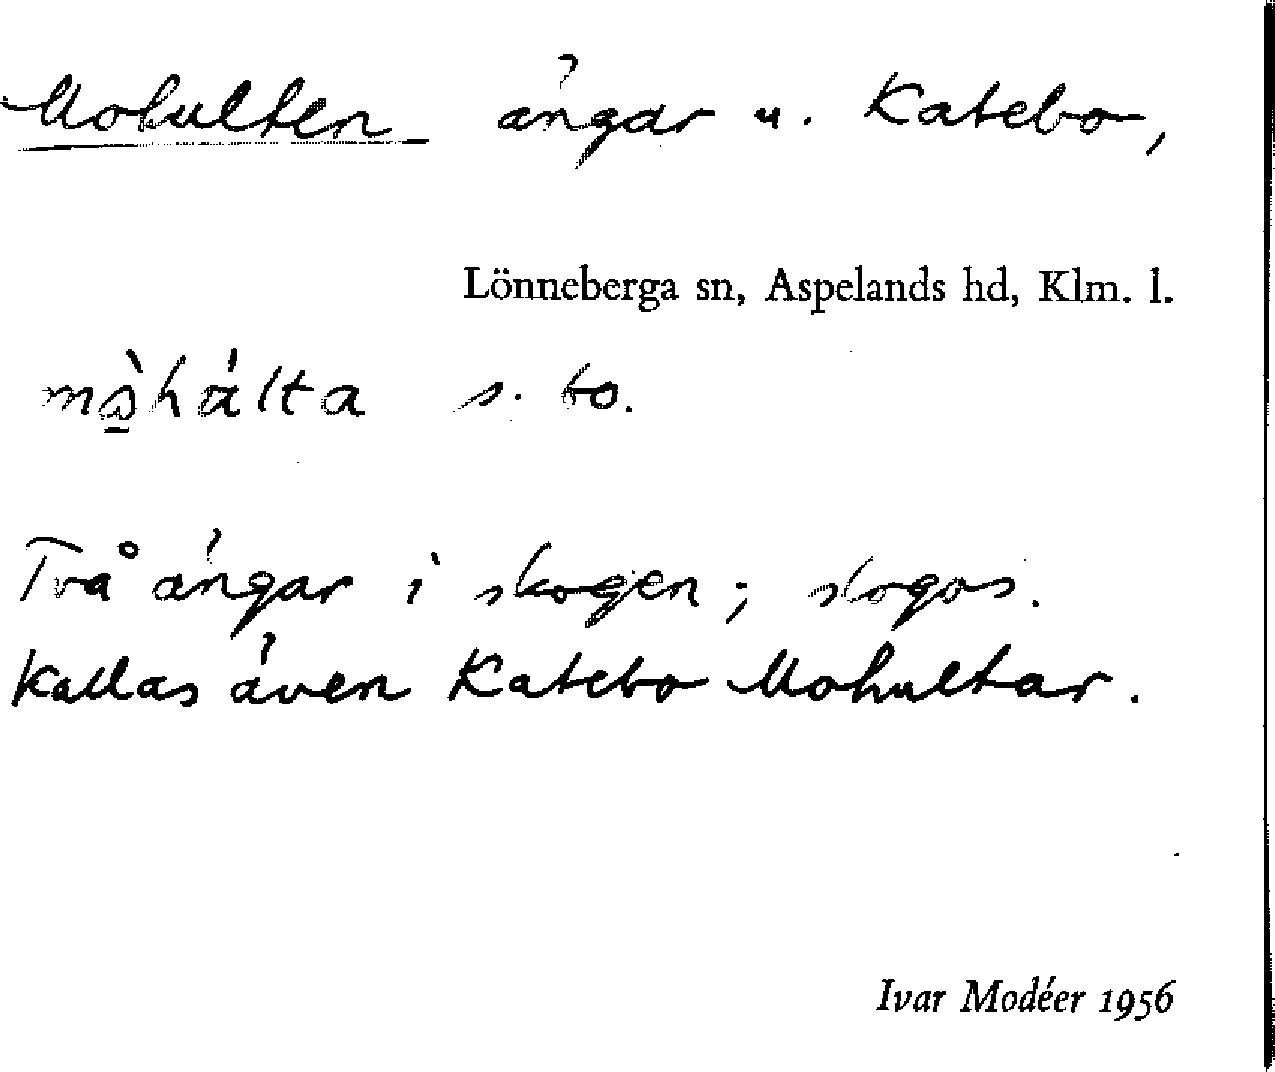 Mohulten ängar u. Katebo,
Lönneberga sn, Aspelands hd, Klm. l.
s. bo.
Två ängar i skogen; skogas.
Kallas även Katebo Mohultar.
Ivar Modéer 1956